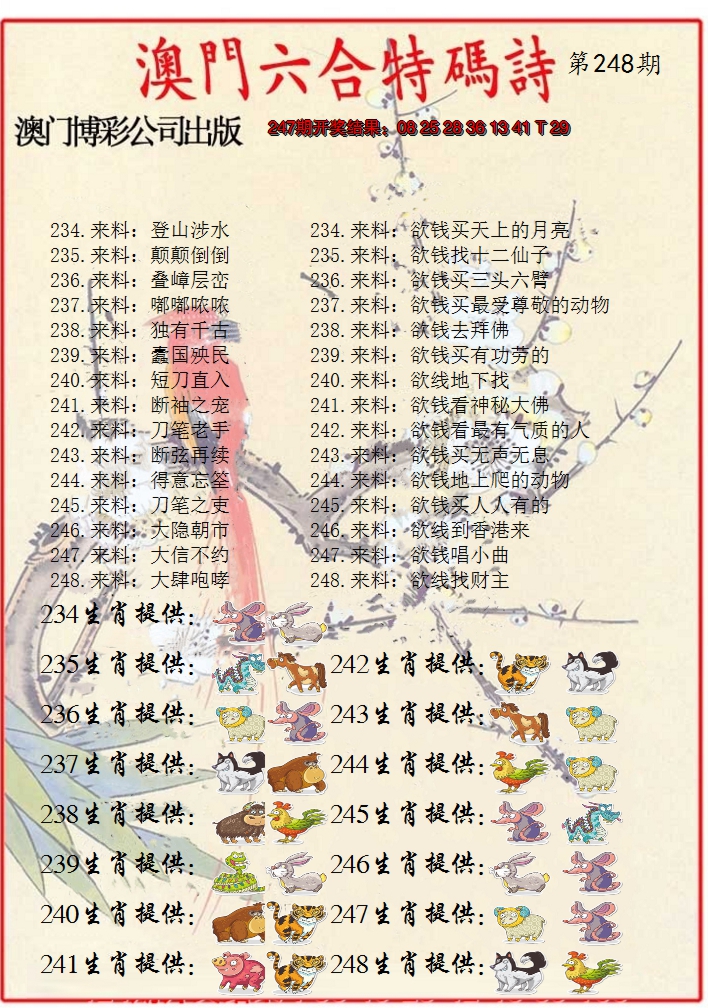 澳門六合特碼詩 第248期
澳门博彩公司出版 247期开奖结果：08 25 28 36 13 41 T 29
234.来料：登山涉水 234.来料：欲钱买天上的月亮
235.来料：颠颠倒倒 235.来料：欲钱找十二仙子
236.来料：叠嶂层峦 236.来料：欲钱买三头六臂
237.来料：嘟嘟哝哝 237.来料：欲钱买最受尊敬的动物
238.来料：独有千古 238.来料：欲钱去拜佛
239.来料：蠹国殃民 239.来料：欲钱买有功劳的
240.来料：短刀直入 240.来料：欲线地下找
241.来料：断袖之宠 241.来料：欲钱看神秘大佛
242.来料：刀笔老手 242.来料：欲钱看最有气质的人
243.来料：断弦再续 243.来料：欲钱买无声无息
244.来料：得意忘筌 244.来料：欲钱地上爬的动物
245.来料：刀笔之吏 245.来料：欲钱买人人有的
246.来料：大隐朝市 246.来料：欲线到香港来
247.来料：大信不约 247.来料：欲钱唱小曲
248.来料：大肆咆哮 248.来料：欲线找财主
234生肖提供：
235生肖提供： 242生肖提供：
236生肖提供： 243生肖提供：
237生肖提供： 244生肖提供：
238生肖提供： 245生肖提供：
239生肖提供： 246生肖提供：
240生肖提供： 247生肖提供：
241生肖提供： 248生肖提供：